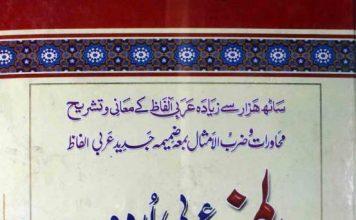 ساٹھ ہزار سے زیادہ عربی الفاظ کے معانی و تشریح
محاورات و ضرب الأمثال بمعہ ضمیمہ جدید عربی الفاظ